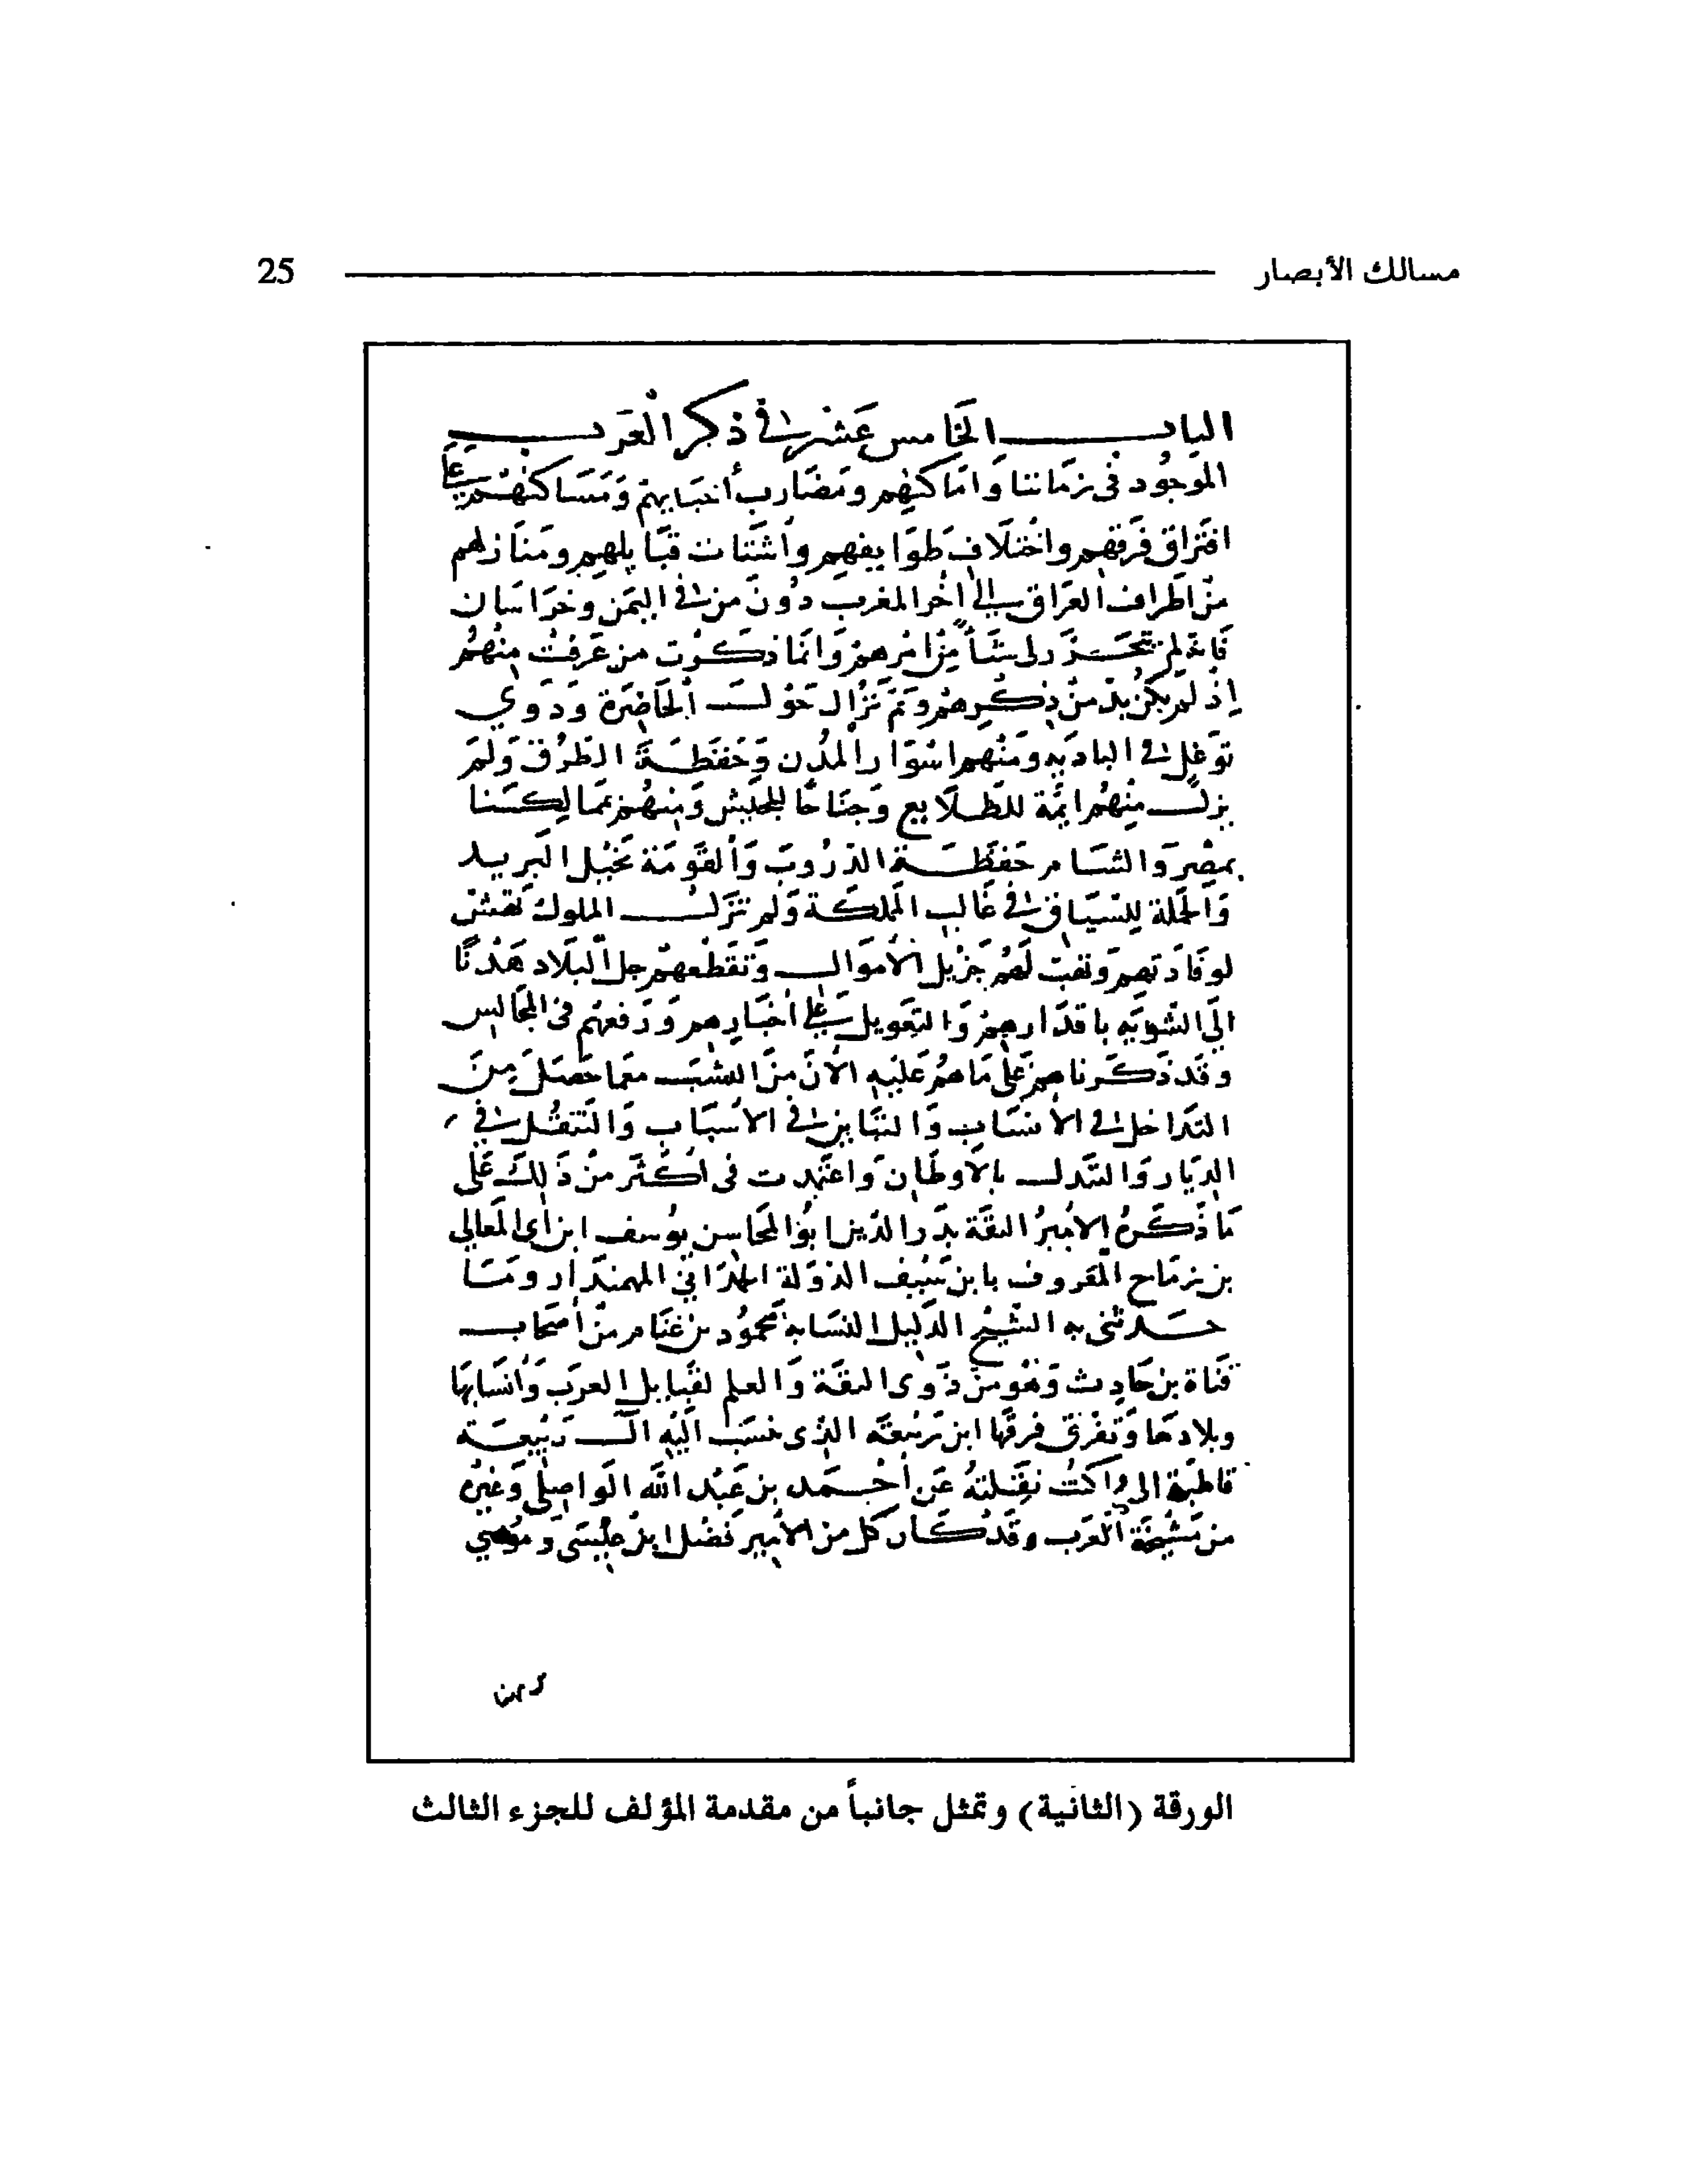 مسالك الأبصار 25
الباب الخامس عشر في ذكر العرب
الموجود في زماننا وأماكنهم ومضارب أحيايهم ومساكنهم على
افتراق فرقهم واختلاف طوايفهم وأشتات قبايلهم ومنازلهم
من أطراف العراق إلى آخر المغرب دون من في اليمن وخراسان
فانه لم يتحرر لي شأ من أمرهم وانما ذكرت من عرفت منهم
إذ لم يكن بد من ذكرهم ولم تزال حول الحاضرة وذوي
توغل في البادية ومنهم اسوار المدن وحفظة الطرق ولم
يزل منهم ايمة للطلايع وجناحا للجيش ومنهم بممالكنا
بمصر والشام حفظة الدروب والقومة بخيل البريد
والحملة للسياق في غالب المملكة ولم تزل الملوك تهش
لوفادتهم وتهب لهم جزيل الأموال وتقطعهم جل البلاد هذا
إلى التنويه باقدارهم والتعويل على أخبارهم ورفعهم في المجالس
وقد ذكرناهم على ما هم عليه الآن من النسب مما حصل من
التداخل في الأنساب والتباين في الاسباب والتنقل في
الديار والتبدل بالأوطان واعتمدت في اكثر من ذلك على
ما ذكره الأمير الثقة بدر الدين ابو المحاسن يوسف ابن أبي المعالي
بن زماح المعروف بابن سيف الدولة الحمداني المهمندار ومما
حدثني به الشيخ الدليل النسابة محمود بن غنام من أصحاب
قناة بن حارث وهو من ذوي الثقة والعلم لقبايل العرب وأنسابها
وبلادها وتفرق فرقها ابن ربيعة الذي نسب اليه آل ربيعة
قاطبة إلى ما كنت نقلته عن أحمد بن عبد الله الواصلي وغيره
من مشيخة العرب وقد كان كل من الأمير فضل ابن عيسى وموسى
الورقة (الثانية) وتمثل جانباً من مقدمة المؤلف للجزء الثالث